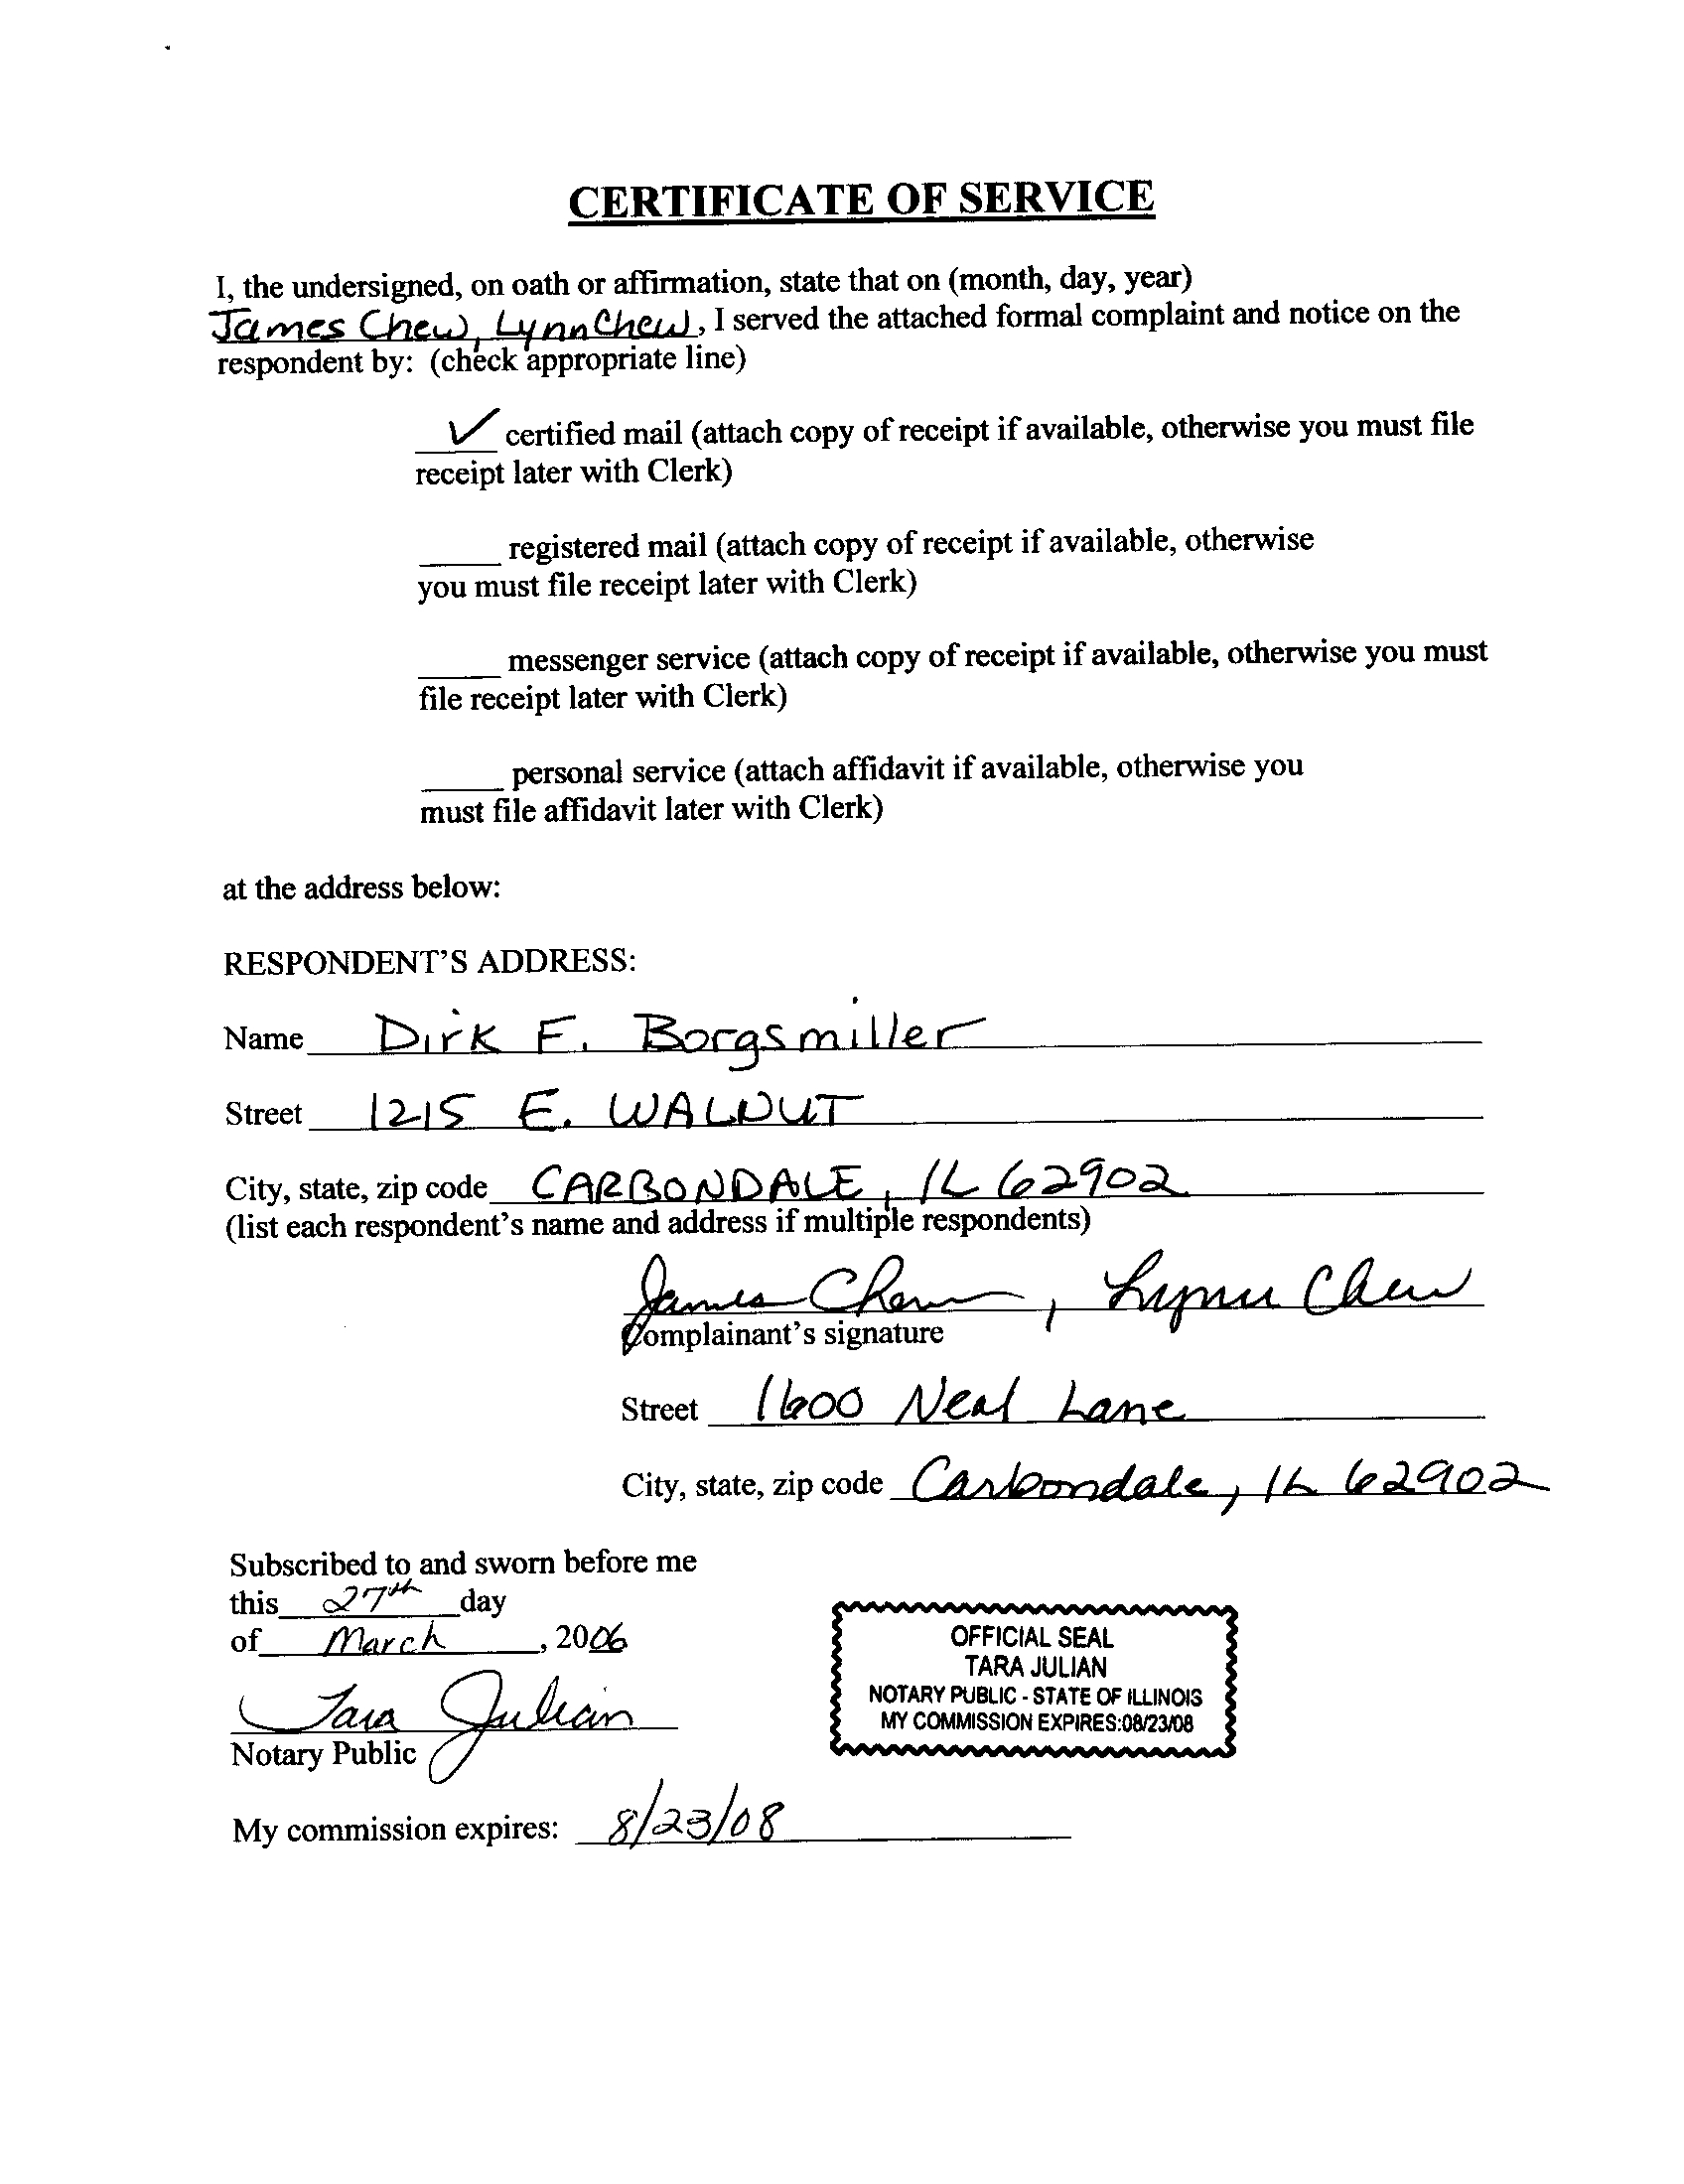 CERTIFICATE OF SERVICE
I, the undersigned, on oath or affirmation, state that on (month, day, year)
James Chew, Lynn Chew, I served the attached formal complaint and notice on the
respondent by: (check appropriate line)
✓ certified mail (attach copy of receipt if available, otherwise you must file
receipt later with Clerk)
____ registered mail (attach copy of receipt if available, otherwise
you must file receipt later with Clerk)
____ messenger service (attach copy of receipt if available, otherwise you must
file receipt later with Clerk)
____ personal service (attach affidavit if available, otherwise you
must file affidavit later with Clerk)
at the address below:
RESPONDENT'S ADDRESS:
Name Dirk F. Borgsmiller
Street 1215 E. WALNUT
City, state, zip code CARBONDALE, IL 62902
(list each respondent's name and address if multiple respondents)
James Chew, Lynn Chew
Complainant's signature
Street 1600 Neal Lane
City, state, zip code Carbondale, IL 62902
Subscribed to and sworn before me
this 27th day
of March, 2006
OFFICIAL SEAL
TARA JULIAN
NOTARY PUBLIC - STATE OF ILLINOIS
MY COMMISSION EXPIRES:08/23/08
Tara Julian
Notary Public
My commission expires: 8/23/08